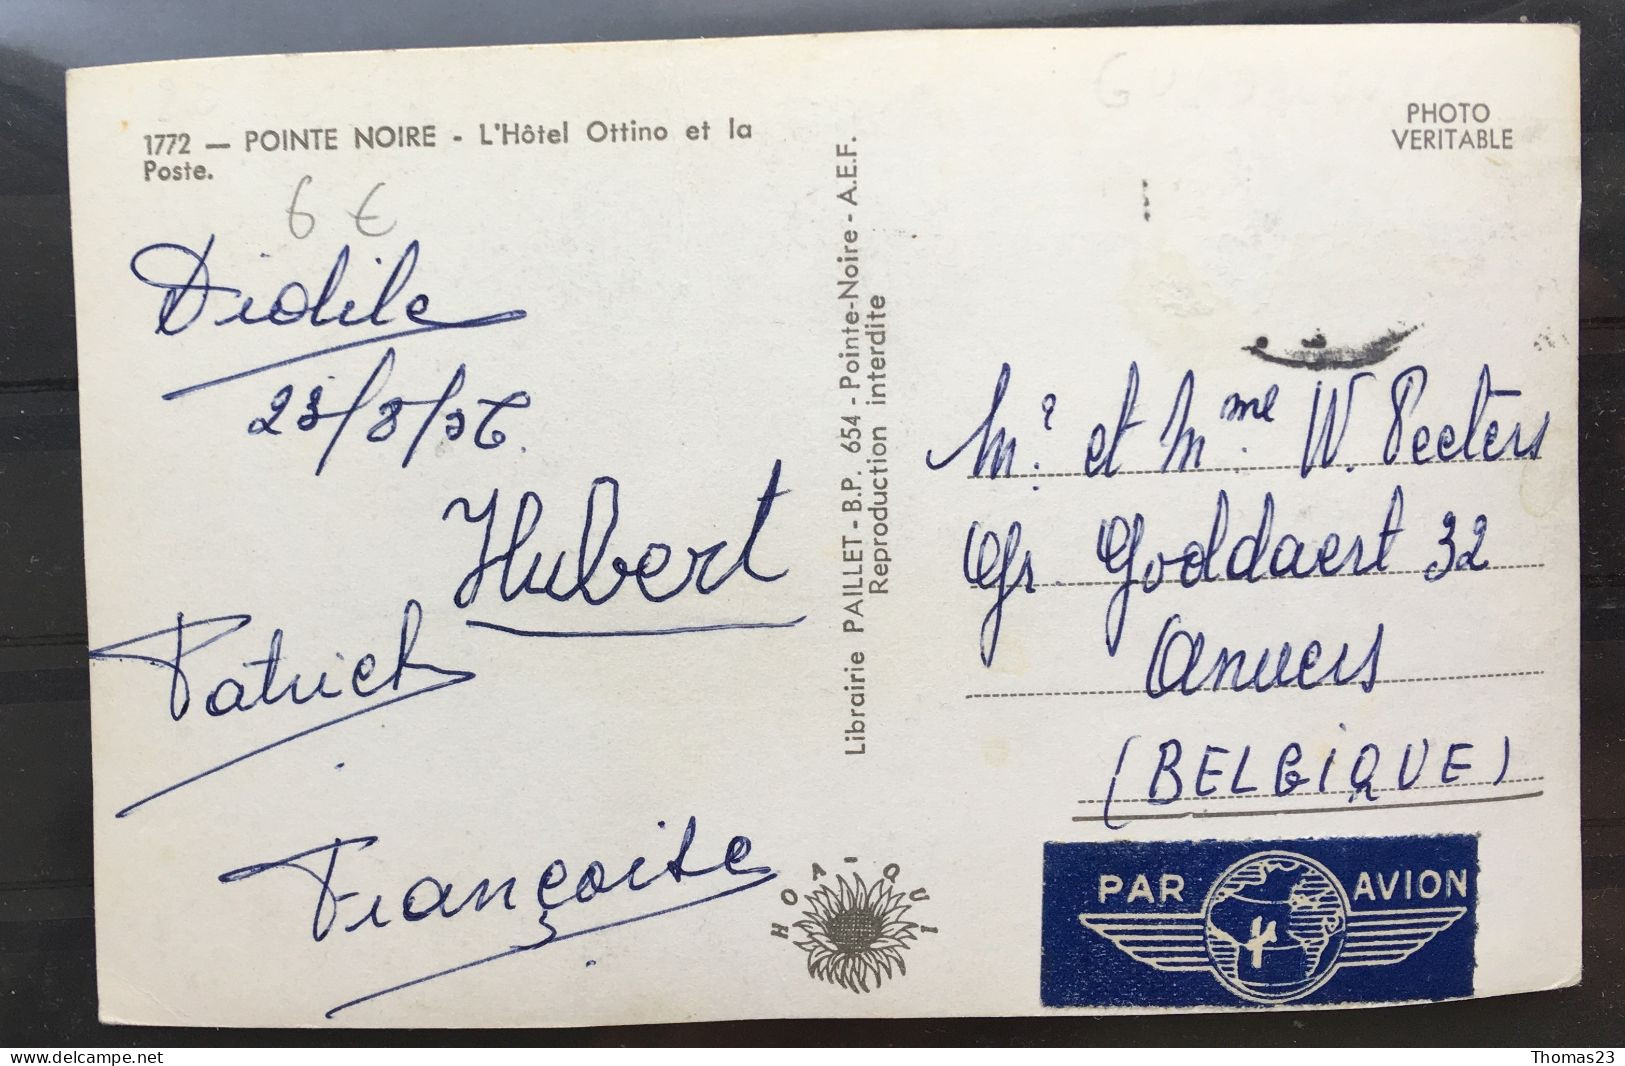 1772 — POINTE NOIRE - L'Hôtel Ottino et la
Poste.
6 €
23/8/56.
Hubert
Patrick
Françoise
Librairie PAILLET - B.P. 654 - Pointe-Noire - A.E.F.
Reproduction interdite
HOA-QUI
PHOTO
VERITABLE
Mr. et Mme. W. Peeters
Gr. Goddaert 32
Anvers
(BELGIQUE)
PAR AVION
Thomas23